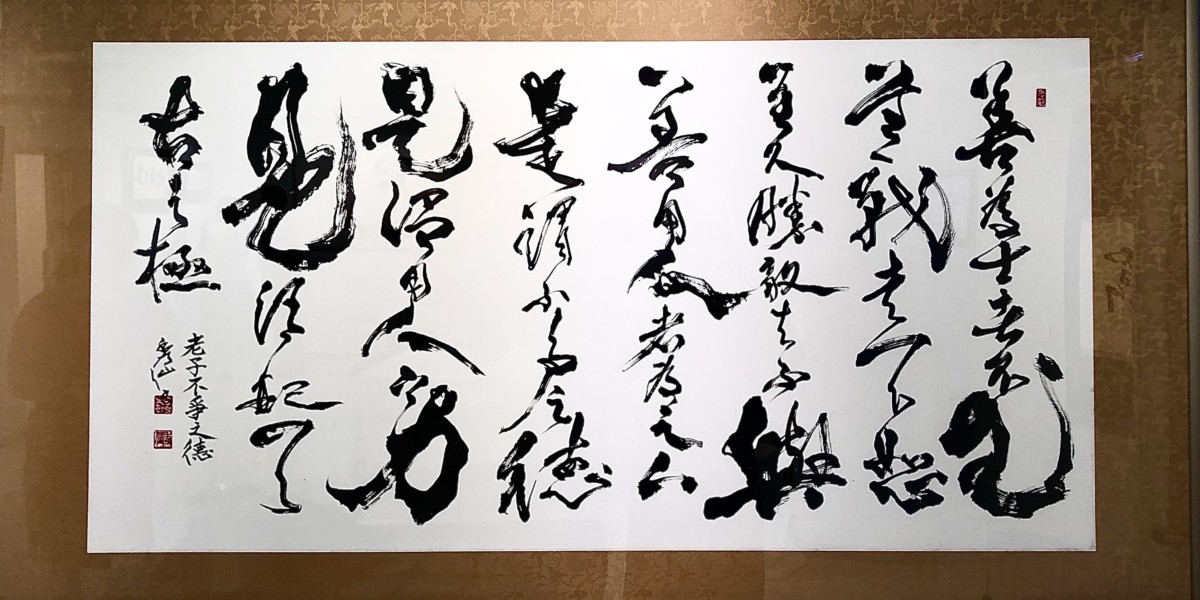 善為士者不武
善戰者不怒
善勝敵者不與
善用人者為之下
是謂不爭之德
是謂用人之力
是謂配天
古之極
老子不爭之德